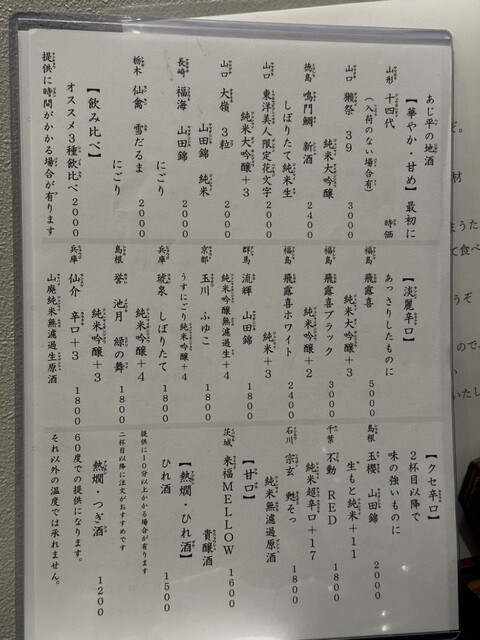 あじ平の地酒
【華やか・甘め】最初に
山形 十四代 時価
(入荷のない場合有)
山口 獺祭 39 3000
純米大吟醸
徳島 鳴門鯛 新酒 2400
しぼりたて純米生
山口 東洋美人限定花文字 2000
純米大吟醸+3
山口 大嶺 3粒 2000
山田錦 純米
長崎 福海 山田錦 2000
にごり
栃木 仙禽 雪だるま 2000
にごり
【飲み比べ】
オススメ3種飲比べ2000
提供に時間がかかる場合が有ります
【淡麗辛口】
あっさりしたものに
福島 飛露喜 5000
純米大吟醸+3
福島 飛露喜ブラック 3000
純米吟醸+2
福島 飛露喜ホワイト 2400
純米+3
群馬 流輝 山田錦 1800
純米吟醸無濾過生+4
京都 玉川 ふゆこ 1800
うすにごり純米吟醸+4
兵庫 琥泉 しぼりたて 1800
純米吟醸+4
島根 誉 池月 緑の舞 1800
純米吟醸+3
兵庫 仙介 辛口+3 1800
山廃純米無濾過生原酒
【クセ辛口】
2杯目以降で
味の強いものに
島根 玉櫻 山田錦 2000
生もと純米+11
千葉 不動 RED 1800
純米超辛口+17
石川 宗玄 甦そっ 1800
純米無濾過原酒
【甘口】
茨城 来福MELLOW 1600
貴醸酒
【熱燗・ひれ酒】
ひれ酒 1500
提供に10分以上かかる場合が有ります
二杯目以降に注文がおすすめです
熱燗・つぎ酒 1200
60度での提供になります。
それ以外の温度では承れません。